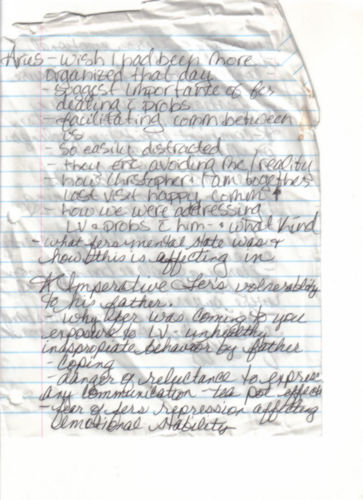 Arus - wish I had been more
organized that day
- suggest importance of fers
dealing & probs
- facilitating comm between
us
- so easily distracted
- they are avoiding me/reality
- how Christopher & I am together
last visit happy comm ↑
- how we were addressing
LV & probs & him - & what kind
- what fers mental state was &
how this is affecting in
Imperative fers vulnerablity
to his father.
- why fer was coming to you
exposure to LV - unhealthy
inappropiate behavior by father
- coping
- danger of reluctance to express
any communication - effect
- fear of fers repression affecting
emotional stability